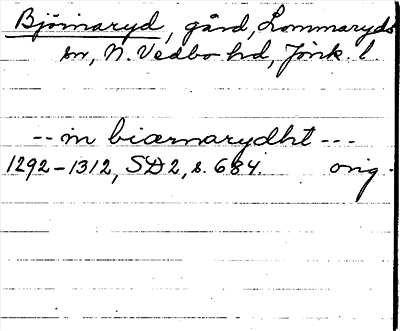 Björnaryd, gård, Lommaryds
sn, N. Vedbo hd, Jönk. l.
-- in biærnarydht ---
1292-1312, SD 2, s. 684. orig.